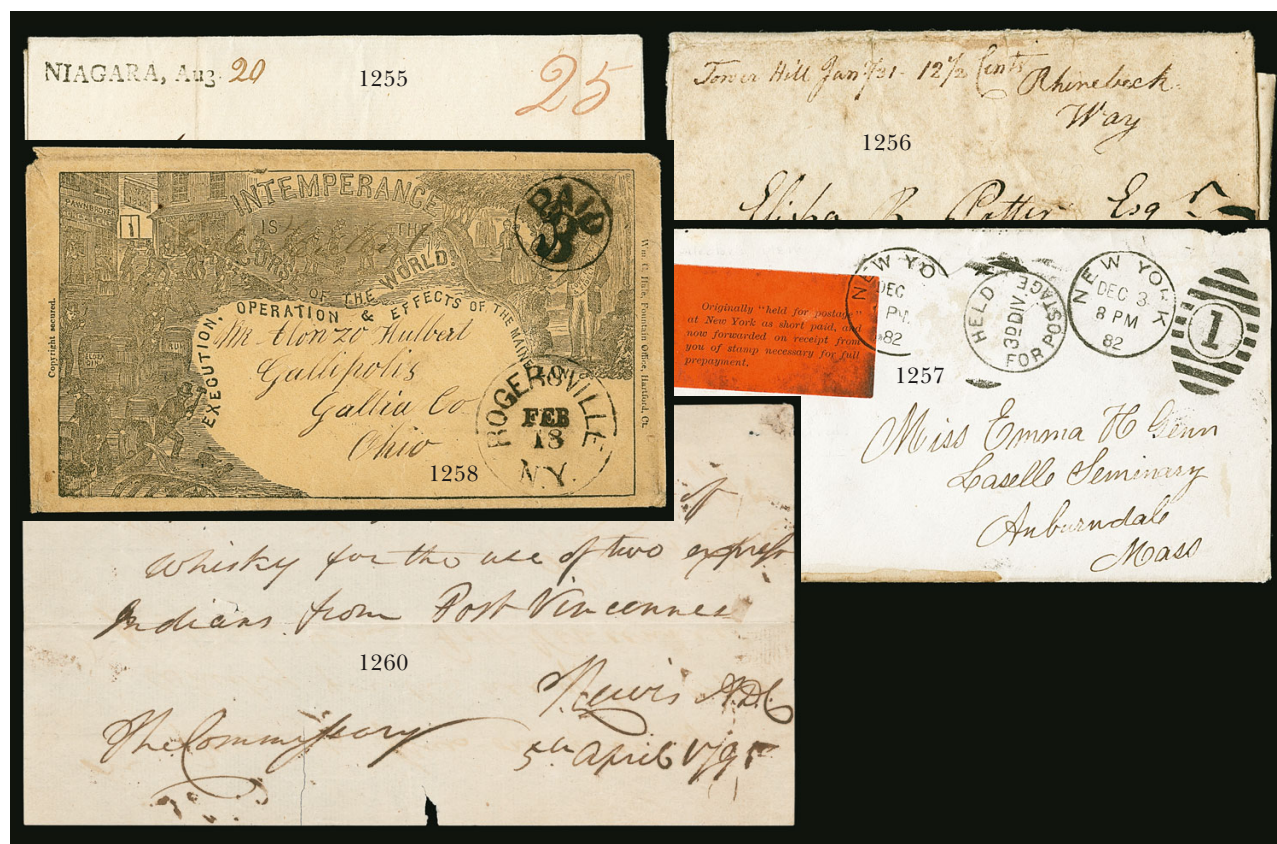 NIAGARA, Aug. 20
1255
25
Tower Hill Jany 31. 12 1/2 Cents
Rhinebeck
Way
1256
Elisha R. Potter Esqr
PAWNBROKER
1
INTEMPERANCE
IS THE
CURSE OF THE WORLD
PAID
3
EXECUTION, OPERATION & EFFECTS OF THE MAINE
RUM
GIN
Copyright secured.
Wm. C. Hine, Fountain Office, Hartford, Ct.
Mr Alonzo Hulbert
Gallipolis
Gallia Co
Ohio
ROGERSVILLE
FEB
18
N.Y.
1258
Originally "held for postage"
at New York as short paid, and
now forwarded on receipt from
you of stamp necessary for full
prepayment.
NEW YO
DEC
PM
82
HELD FOR POSTAGE
3D DIV.
NEW YORK
DEC 3
8 PM
82
1
1257
Miss Emma H Genn
Laselle Seminary
Auburndale
Mass
of
Whisky for the use of two express
Indians from Post Vincennes
1260
Lewis A.D.C
The Commissary
5th April 1795